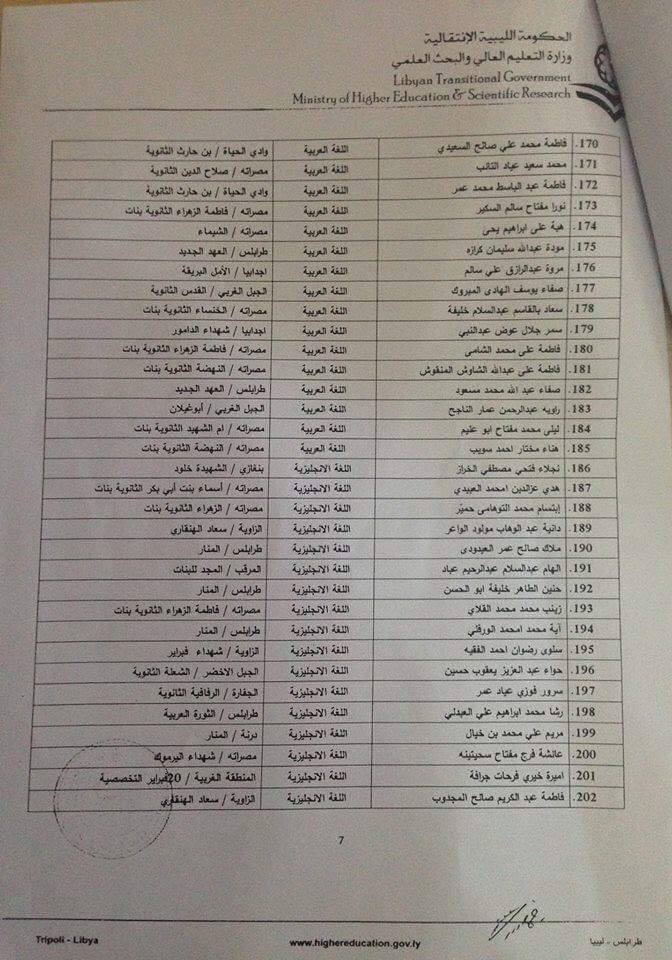 الحكومة الليبية الإنتقالية
وزارة التعليم العالي والبحث العلمي
Libyan Transitional Government
Ministry of Higher Education & Scientific Research
170. فاطمة محمد علي صالح السعيدي اللغة العربية وادي الحياة / بن حارث الثانوية
171. محمد سعيد عياد التائب اللغة العربية مصراته / صلاح الدين الثانوية
172. فاطمة عبد الباسط محمد عمر اللغة العربية وادي الحياة / بن حارث الثانوية
173. نورا مفتاح سالم السكير اللغة العربية مصراته / فاطمة الزهراء الثانوية بنات
174. هبة على ابراهيم يحى اللغة العربية مصراته / الشيماء
175. مودة عبدالله سليمان كرازه اللغة العربية طرابلس / العهد الجديد
176. مروة عبدالرازق علي سالم اللغة العربية اجدابيا / الأمل البريقة
177. صفاء يوسف الهادى المبروك اللغة العربية الجبل الغربي / القدس الثانوية
178. سعاد بالقاسم عبدالسلام خليفة اللغة العربية مصراته / الخنساء الثانوية بنات
179. سمر جلال عوض عبدالنبي اللغة العربية اجدابيا / شهداء الدامور
180. فاطمة على محمد الشامى اللغة العربية مصراته / فاطمة الزهراء الثانوية بنات
181. فاطمة على عبدالله الشاوش المنقوش اللغة العربية مصراته / النهضة الثانوية بنات
182. صفاء عبد الله محمد مسعود اللغة العربية طرابلس / العهد الجديد
183. راويه عبدالرحمن عمار الناجح اللغة العربية الجبل الغربي / أبوغيلان
184. ليلى محمد مفتاح ابو عليم اللغة العربية مصراته / ام الشهيد الثانوية بنات
185. هناء مختار احمد سويب اللغة العربية مصراته / النهضة الثانوية بنات
186. نجلاء فتحي مصطفي الخراز اللغة الانجليزية بنغازي / الشهيدة خلود
187. هدي عزالدين امحمد العبيدي اللغة الانجليزية مصراته / أسماء بنت أبي بكر الثانوية بنات
188. إبتسام محمد التوهامى حمير اللغة الانجليزية مصراته / الزهراء الثانوية بنات
189. دانية عبد الوهاب مولود الواعر اللغة الانجليزية الزاوية / سعاد الهنقاري
190. ملاك صالح عمر العبدودى اللغة الانجليزية طرابلس / المنار
191. الهام عبدالسلام عبدالرحيم عياد اللغة الانجليزية المرقب / المجد للبنات
192. حنين الطاهر خليفة ابو الحسن اللغة الانجليزية طرابلس / المنار
193. زينب محمد محمد القلاي اللغة الانجليزية مصراته / فاطمة الزهراء الثانوية بنات
194. آية محمد امحمد الورقلي اللغة الانجليزية طرابلس / المنار
195. سلوى رضوان احمد الفقيه اللغة الانجليزية الزاوية / شهداء فبراير
196. حواء عبد العزيز يعقوب حسين اللغة الانجليزية الجبل الاخضر / الشعلة الثانوية
197. سرور فوزي عياد عمر اللغة الانجليزية الجفارة / الرفاقية الثانوية
198. رشا محمد ابراهيم علي العبدلي اللغة الانجليزية طرابلس / الثورة العربية
199. مريم علي محمد بن خيال اللغة الانجليزية درنة / المنار
200. عائشة فرج مفتاح سحيتينه اللغة الانجليزية مصراته / شهداء اليرموك
201. اميرة خيري فرحات جرافة اللغة الانجليزية المنطقة الغربية / 20فبراير التخصصية
202. فاطمة عبد الكريم صالح المجدوب اللغة الانجليزية الزاوية / سعاد الهنقاري
7
Tripoli - Libya www.highereducation.gov.ly طرابلس - ليبيا